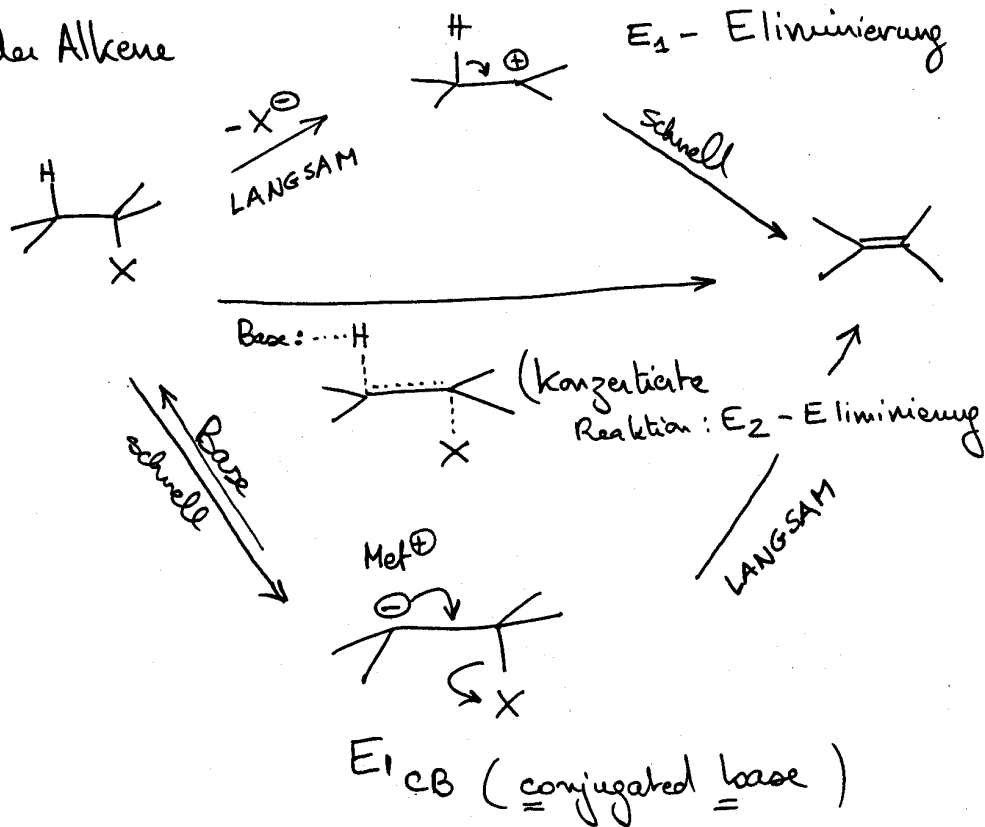 der Alkene
E1 - Eliminierung
H
⊕
-X⊖
LANGSAM
schnell
H
X
Base: ····H
(Konzertierte
Reaktion: E2 - Eliminierung
X
Base
schnell
LANGSAM
Met⊕
⊖
X
E1 CB (conjugated base)